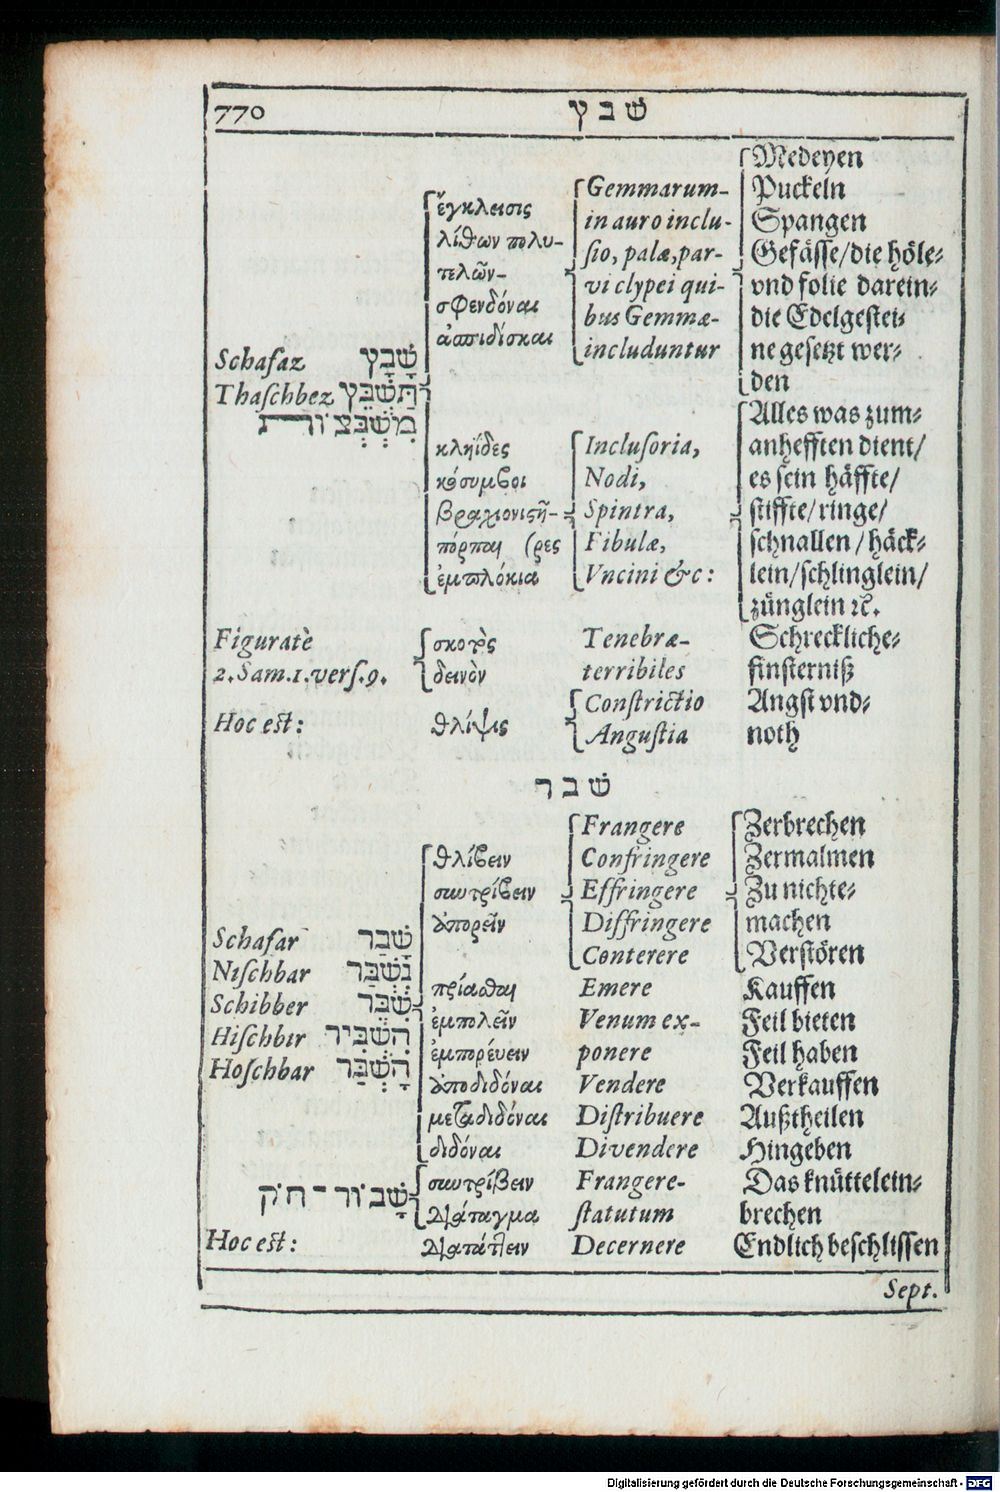 770 שבץ
Medeyen
Gemmarum- Puckeln
ἔγκλεισις in auro inclu- Spangen
λίθων πολυ- sio, palæ, par- Gefässe/die höle-
τελῶν- vi clypei qui- vnd folie darein-
σφενδόναι bus Gemmæ- die Edelgestei-
ἀσπιδίσκαι includuntur ne gesetzt wer-
Schafaz שָׁבָץ den
Thaschbez תַּשְׁבֵּץ Alles was zum-
מִשְׁבְּצוֹת
κληῗδες Inclusoria, anhefften dient/
κόσυμβοι Nodi, es sein häffte/
βραχιονιστῆ- Spintra, stiffte/ringe/
πόρπαι (ρες Fibulæ, schnallen/häck-
ἐμπλόκια Vncini &c: lein/schlinglein/
zünglein ꝛc.
Figuratè σκότος Tenebræ- Schreckliche-
2.Sam.1.vers.9. δεινὸν terribiles finsterniß
Constrictio Angst vnd-
Hoc est: θλίψις Angustia noth
שבר
Frangere Zerbrechen
θλίβειν Confringere Zermalmen
συντρίβειν Effringere Zu nichte-
ἀπορεῖν Diffringere machen
Schafar שָׁבַר Conterere Verstören
Nischbar נִשְׁבַּר πρίασθαι Emere Kauffen
Schibber שִׁבֵּר ἐμπολεῖν Venum ex- Feil bieten
Hischbir הִשְׁבִּיר ἐμπορεύειν ponere Feil haben
Hoschbar הָשְׁבַּר ἀποδιδόναι Vendere Verkauffen
μεταδιδόναι Distribuere Außtheilen
διδόναι Divendere Hingeben
συντρίβειν Frangere- Das knüttelein-
שָׁבוֹר־חֹק διάταγμα statutum brechen
Hoc est: διατάττειν Decernere Endlich beschlissen
Sept.
Digitalisierung gefördert durch die Deutsche Forschungsgemeinschaft - DFG